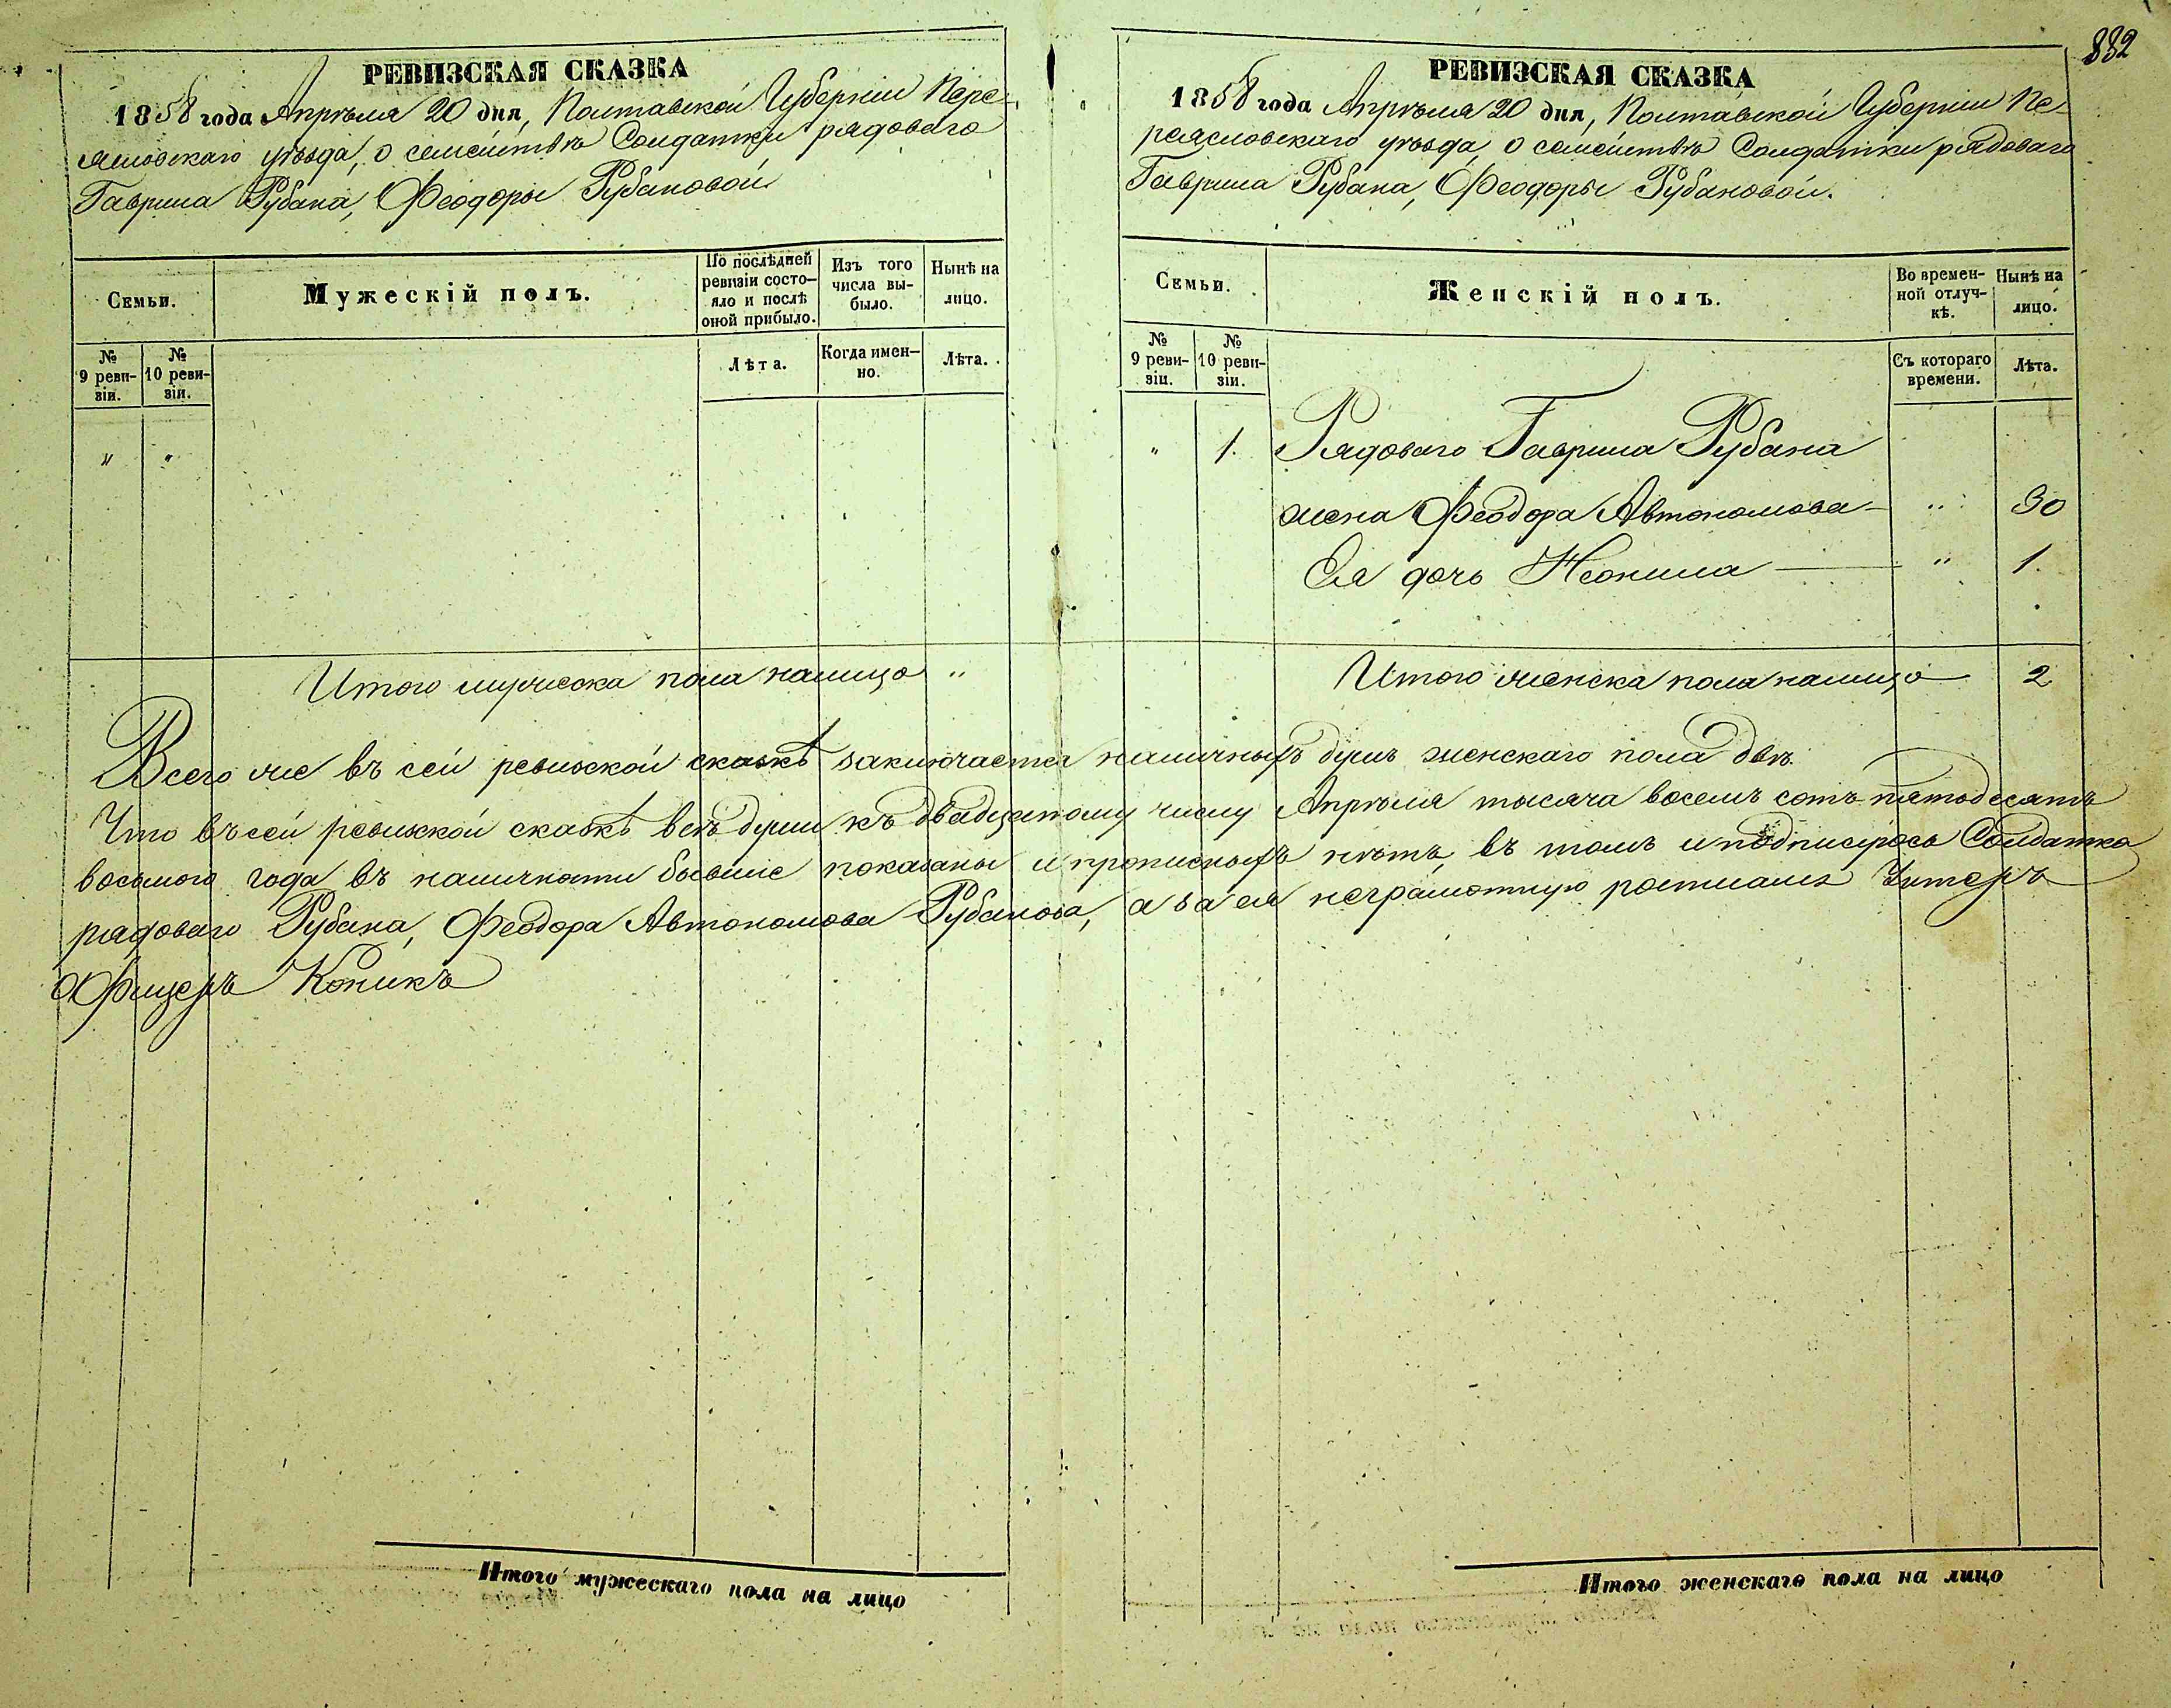 882
РЕВИЗСКАЯ СКАЗКА
1858 года Апрѣля 20 дня, Полтавской Губерніи Пере-
яславскаго уѣзда, о семействѣ Солдатки рядоваго
Гаврила Рубана, Феодоры Рубановой
Семьи.
Мужескій полъ.
По послѣдней ревизіи состо-яло и послѣ оной прибыло.
Изъ того числа вы-было.
Нынѣ на лицо.
№ 9 реви-зіи.
№ 10 реви-зіи.
Лѣта.
Когда имен-но.
Лѣта.
" "
Итого мужеска пола налицо "
РЕВИЗСКАЯ СКАЗКА
1858 года Апрѣля 20 дня, Полтавской Губерніи Пе-
реясловскаго уѣзда, о семействѣ Солдатки рядоваго
Гаврила Рубана, Феодоры Рубановой.
Семьи.
Женскій полъ.
Во времен-ной отлуч-кѣ.
Нынѣ на лицо.
№ 9 реви-зіи.
№ 10 реви-зіи.
Съ котораго времени.
Лѣта.
" 1. Рядоваго Гаврила Рубана
жена Феодора Автономова " 30
Ея дочь Неонила " 1.
Итого женска пола налицо 2
Всего же въ сей ревизской сказкѣ заключается наличныхъ душъ женскаго пола двѣ.
Что въ сей ревизской сказкѣ всѣ души къ двадцатому числу Апрѣля тысяча восемь сотъ пятьдесятъ
восьмого года въ наличности бывшіе показаны и прописныхъ нѣтъ, въ томъ и подписуюсь Солдатка
рядоваго Рубана, Феодора Автономова Рубанова, а за ея неграмотную росписался Унтеръ
Офицеръ Коникъ
Итого мужескаго пола на лицо
Итого женскаго пола на лицо